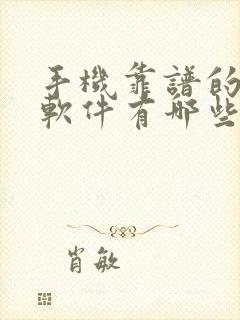 手機靠譜的
軟件有哪些
肖敏